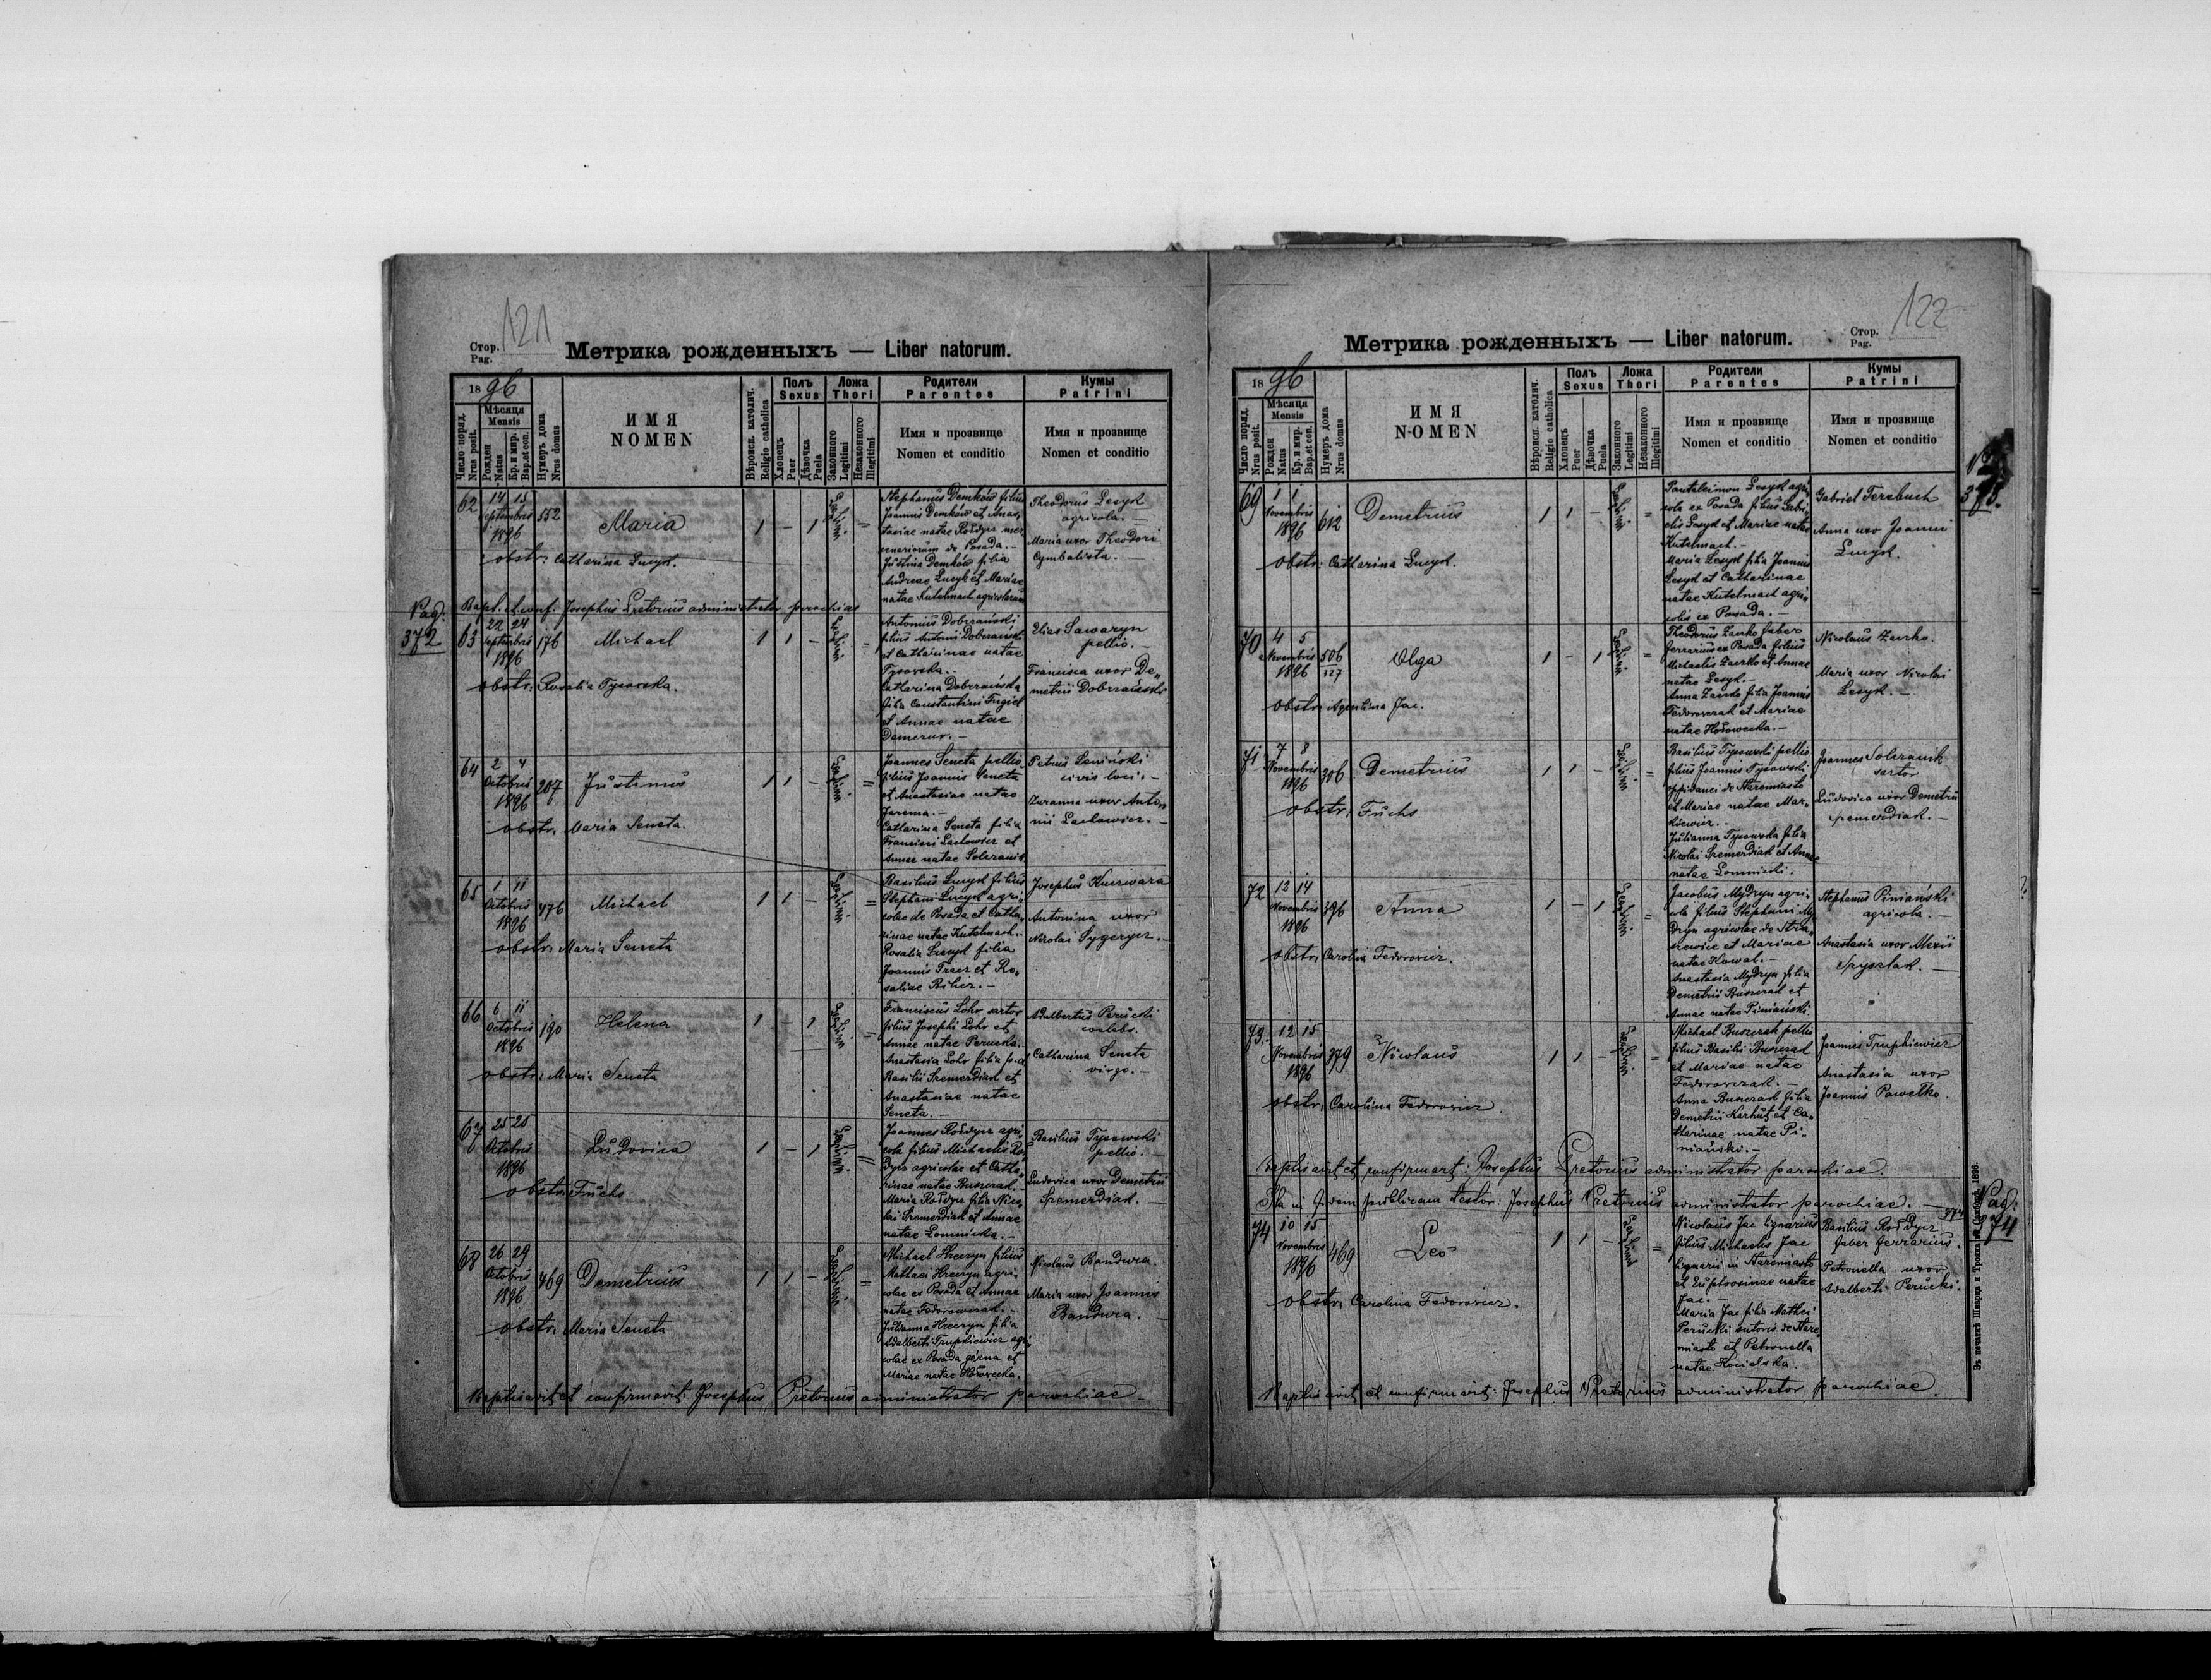 121
Стор.
Pag.
Метрика рожденныхъ — Liber natorum.
1896
Число поряд.
Nrus posit.
Мѣсяця
Mensis
Рожден
Natus
Кр. и мир.
Bap. et con.
Нумеръ дома
Nrus domus
ИМЯ
NOMEN
Вѣроисп. католич.
Religio catholica
Полъ
Sexus
Хлопець
Puer
Дѣвочка
Puela
Ложа
Thori
Законного
Legitimi
Незаконного
Illegitimi
Родители
Parentes
Имя и прозвище
Nomen et conditio
Кумы
Patrini
Имя и прозвище
Nomen et conditio
62 14 15 Septembris 1896 552 Maria 1 - 1
Stephanus Demków filius
Joannis Demków et Anas,
tasiae natae Rozdyr mer
cenariorum de Posada.-
Justina Demków filia
Andreae Lucyk et Mariae
natae Kutelmach agricolarum
Theodorus Lesyk
agricola.-
Maria uxor Theodori
Cymbalista.-
obstr: Catharina Lucyk.
Bapt. et conf. Josephus Pretorius administrator parochiae
Pag.
372
63 22 24 Septembris 1896 176 Michael 1 1 -
Antonius Dobrzański
filius Antonii Dobrzański
et Catharinae natae
Tysowska.-
Catharina Dobrzańska
filia Constantini Frigiel
et Annae natae
Elias Sawaryn
pellio.-
Francisca uxor De,,
metrii Dobrzański
obstr: Rosalia Tysowska.
64 2 4 Octobris 1896 207 Justinus 1 1 -
Joannes Seneta pellio
filius Joannis Seneta
et Anastasiae natae
Jarema.-
Catharina Seneta filia
Francisci Lachowicz et
Annae natae Solczanik
Petrus
civis loci.-
Zuzanna uxor Anto,,
nii Lachowicz.-
obstr: Maria Seneta.
65 1 11 Octobris 1896 476 Michael 1 1 -
Basilius Lucyk filius
Stephani Lucyk agri,
colae de Posada et Catha,
rinae natae Kutelmach.-
Rosalia Lucyk filia
Joannis Tracz et Ro,
saliae Biher.-
Josephus
Antonina uxor
Nicolai Sygeryez.-
obstr: Maria Seneta
66 6 11 Octobris 1896 190 Helena 1 - 1
Franciscus Lohr sartor
filius Josephi Lohr et
Annae natae Perucka.-
Anastasia Lohr filia
Basilii Szemerdiak et
Anastasiae natae
Seneta.-
Adalbertus Perucki
coelebs.
Catharina Seneta
virgo.-
obstr: Maria Seneta
67 25 25 Octobris 1896 Ludovica 1 - 1
Joannes Rozdyr agri,
cola filius Michaelis Ro,
dyr agricolae et Catha,
rinae natae Buszczak.
Maria Rozdyr filia Nico,
lai Szemerdiak et Annae
natae Łomnicka.-
Basilius Tysowski
pellio.-
Ludovica uxor Demetrii
Szemerdiak.-
obstr: Fuchs
68 26 29 Octobris 1896 469 Demetrius 1 1 -
Michael Hrecryn filius
Mathaei Hrecryn agri,
colae ex Posada et Annae
natae Fedorowczak.-
Julianna Hrecryn filia
Adalberti Trupkiewicz agri,
colae ex Posada górna et
Mariae natae Hołowecka.
Nicolaus Bandura.
Maria uxor Joannis
Bandura.-
obstr: Maria Seneta
Baptisavit et confirmavit: Josephus Pretorius administrator parochiae
122
Стор.
Pag.
Метрика рожденныхъ — Liber natorum.
1896
Число поряд.
Nrus posit.
Мѣсяця
Mensis
Рожден
Natus
Кр. и мир.
Bap. et con.
Нумеръ дома
Nrus domus
ИМЯ
NOMEN
Вѣроисп. католич.
Religio catholica
Полъ
Sexus
Хлопець
Puer
Дѣвочка
Puela
Ложа
Thori
Законного
Legitimi
Незаконного
Illegitimi
Родители
Parentes
Имя и прозвище
Nomen et conditio
Кумы
Patrini
Имя и прозвище
Nomen et conditio
373.
69 1 1 Novembris 1896 612 Demetrius 1 1 -
Pantaleimon Lesyk agri,
cola ex Posada filius Gabri,
elis Lesyk et Mariae natae
Kutelmach.-
Maria Lesyk filia Joannis
Lesyk et Catharinae
natae Kutelmach agri,
colis ex Posada.-
Gabriel Terebuch
Anna uxor Joannis
Lucyk.
obstr: Catharina Lucyk.
70 4 5 Novembris 1896 506/127 Olga 1 - 1
Theodorus Zurko faber
ferrarius ex Posada filius
Michaelis Zurko et Annae
natae Lesyk.-
Anna Zurko filia Joannis
Fedorowczak et Mariae
natae Hołowecka.-
Nicolaus Zurko.
Maria uxor Nicolai
Lesyk.-
obstr: Jac.
71 7 8 Novembris 1896 306 Demetrius 1 1 -
Basilius Tysowski pellio
filius Joannis Tysowski
oppidanei de Staremiasto
et Mariae natae Mar,
kiewicz.-
Julianna Tysowska filia
Nicolai Szemerdiak et Annae
natae Łomnicki.-
Joannes Solczanik
sartor
Ludovica uxor Demetrii
Szemerdiak.-
obstr: Fuchs
72 13 14 Novembris 1896 376 Anna 1 - 1
Jacobus Mydryn agri,
cola filius Stephani My
dryn agricolae de Strza,
łkowice et Mariae
natae Kowal.-
Anastasia Mydryn filia
Demetrii Buszczak et
Annae natae Piniański.
Stephanus Piniański
agricola.-
Anastasia uxor Alexii
obstr: Carolina Fedorowicz.
73. 12 15 Novembris 1896 379 Nicolaus 1 1 -
Michael Buszczak pellio
filius Basilii Buszczak
et Mariae natae
Fedorowczak.-
Anna Buszczak filia
Demetrii Karhut et Ca,
tharinae natae Pi,
niański.-
Joannes Trupkiewicz
Anastasia uxor
Joannis Pawełko.
obstr: Carolina Fedorowicz.
Baptisavit et confirmavit: Josephus Pretorius administrator parochiae.
Ita in fidem publicam testor: Josephus Pretorius administrator parochiae.-
Pag:
374
74 10 15 Novembris 1896 469 Leo 1 1 -
Nicolaus Jac lignarius
filius Michaelis Jac
lignarii in Staremiasto
et Euphrosinae natae
Jac.-
Maria Jac filia Mathei
Perucki sutoris de Stare,
miasto et Petronella
natae Kosielska.
Basilius Rozdyr
faber ferrarius.
Petronella uxor
Adalberti Perucki.
obstr: Carolina Fedorowicz.
Baptisavit et confirmavit: Josephus Pretorius administrator parochiae.